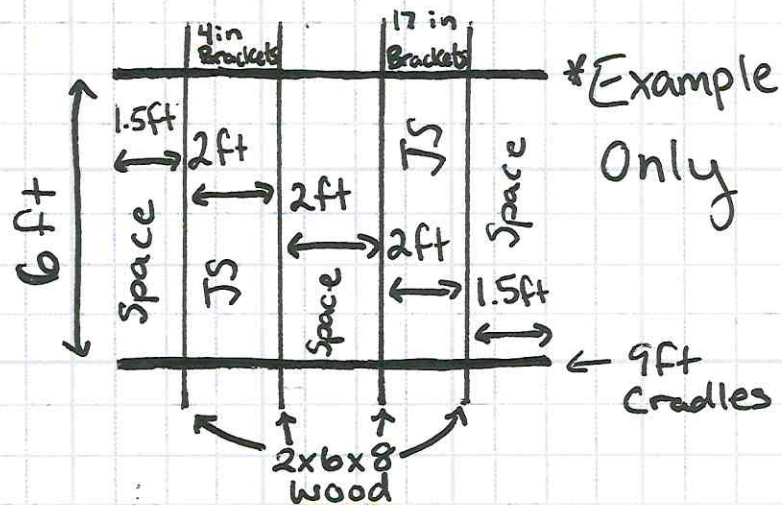 4in
Brackets
17in
Brackets
*Example
Only
6ft
1.5ft
2ft
2ft
2ft
1.5ft
Space
JS
Space
JS
Space
← 9ft
Cradles
2x6x8
wood